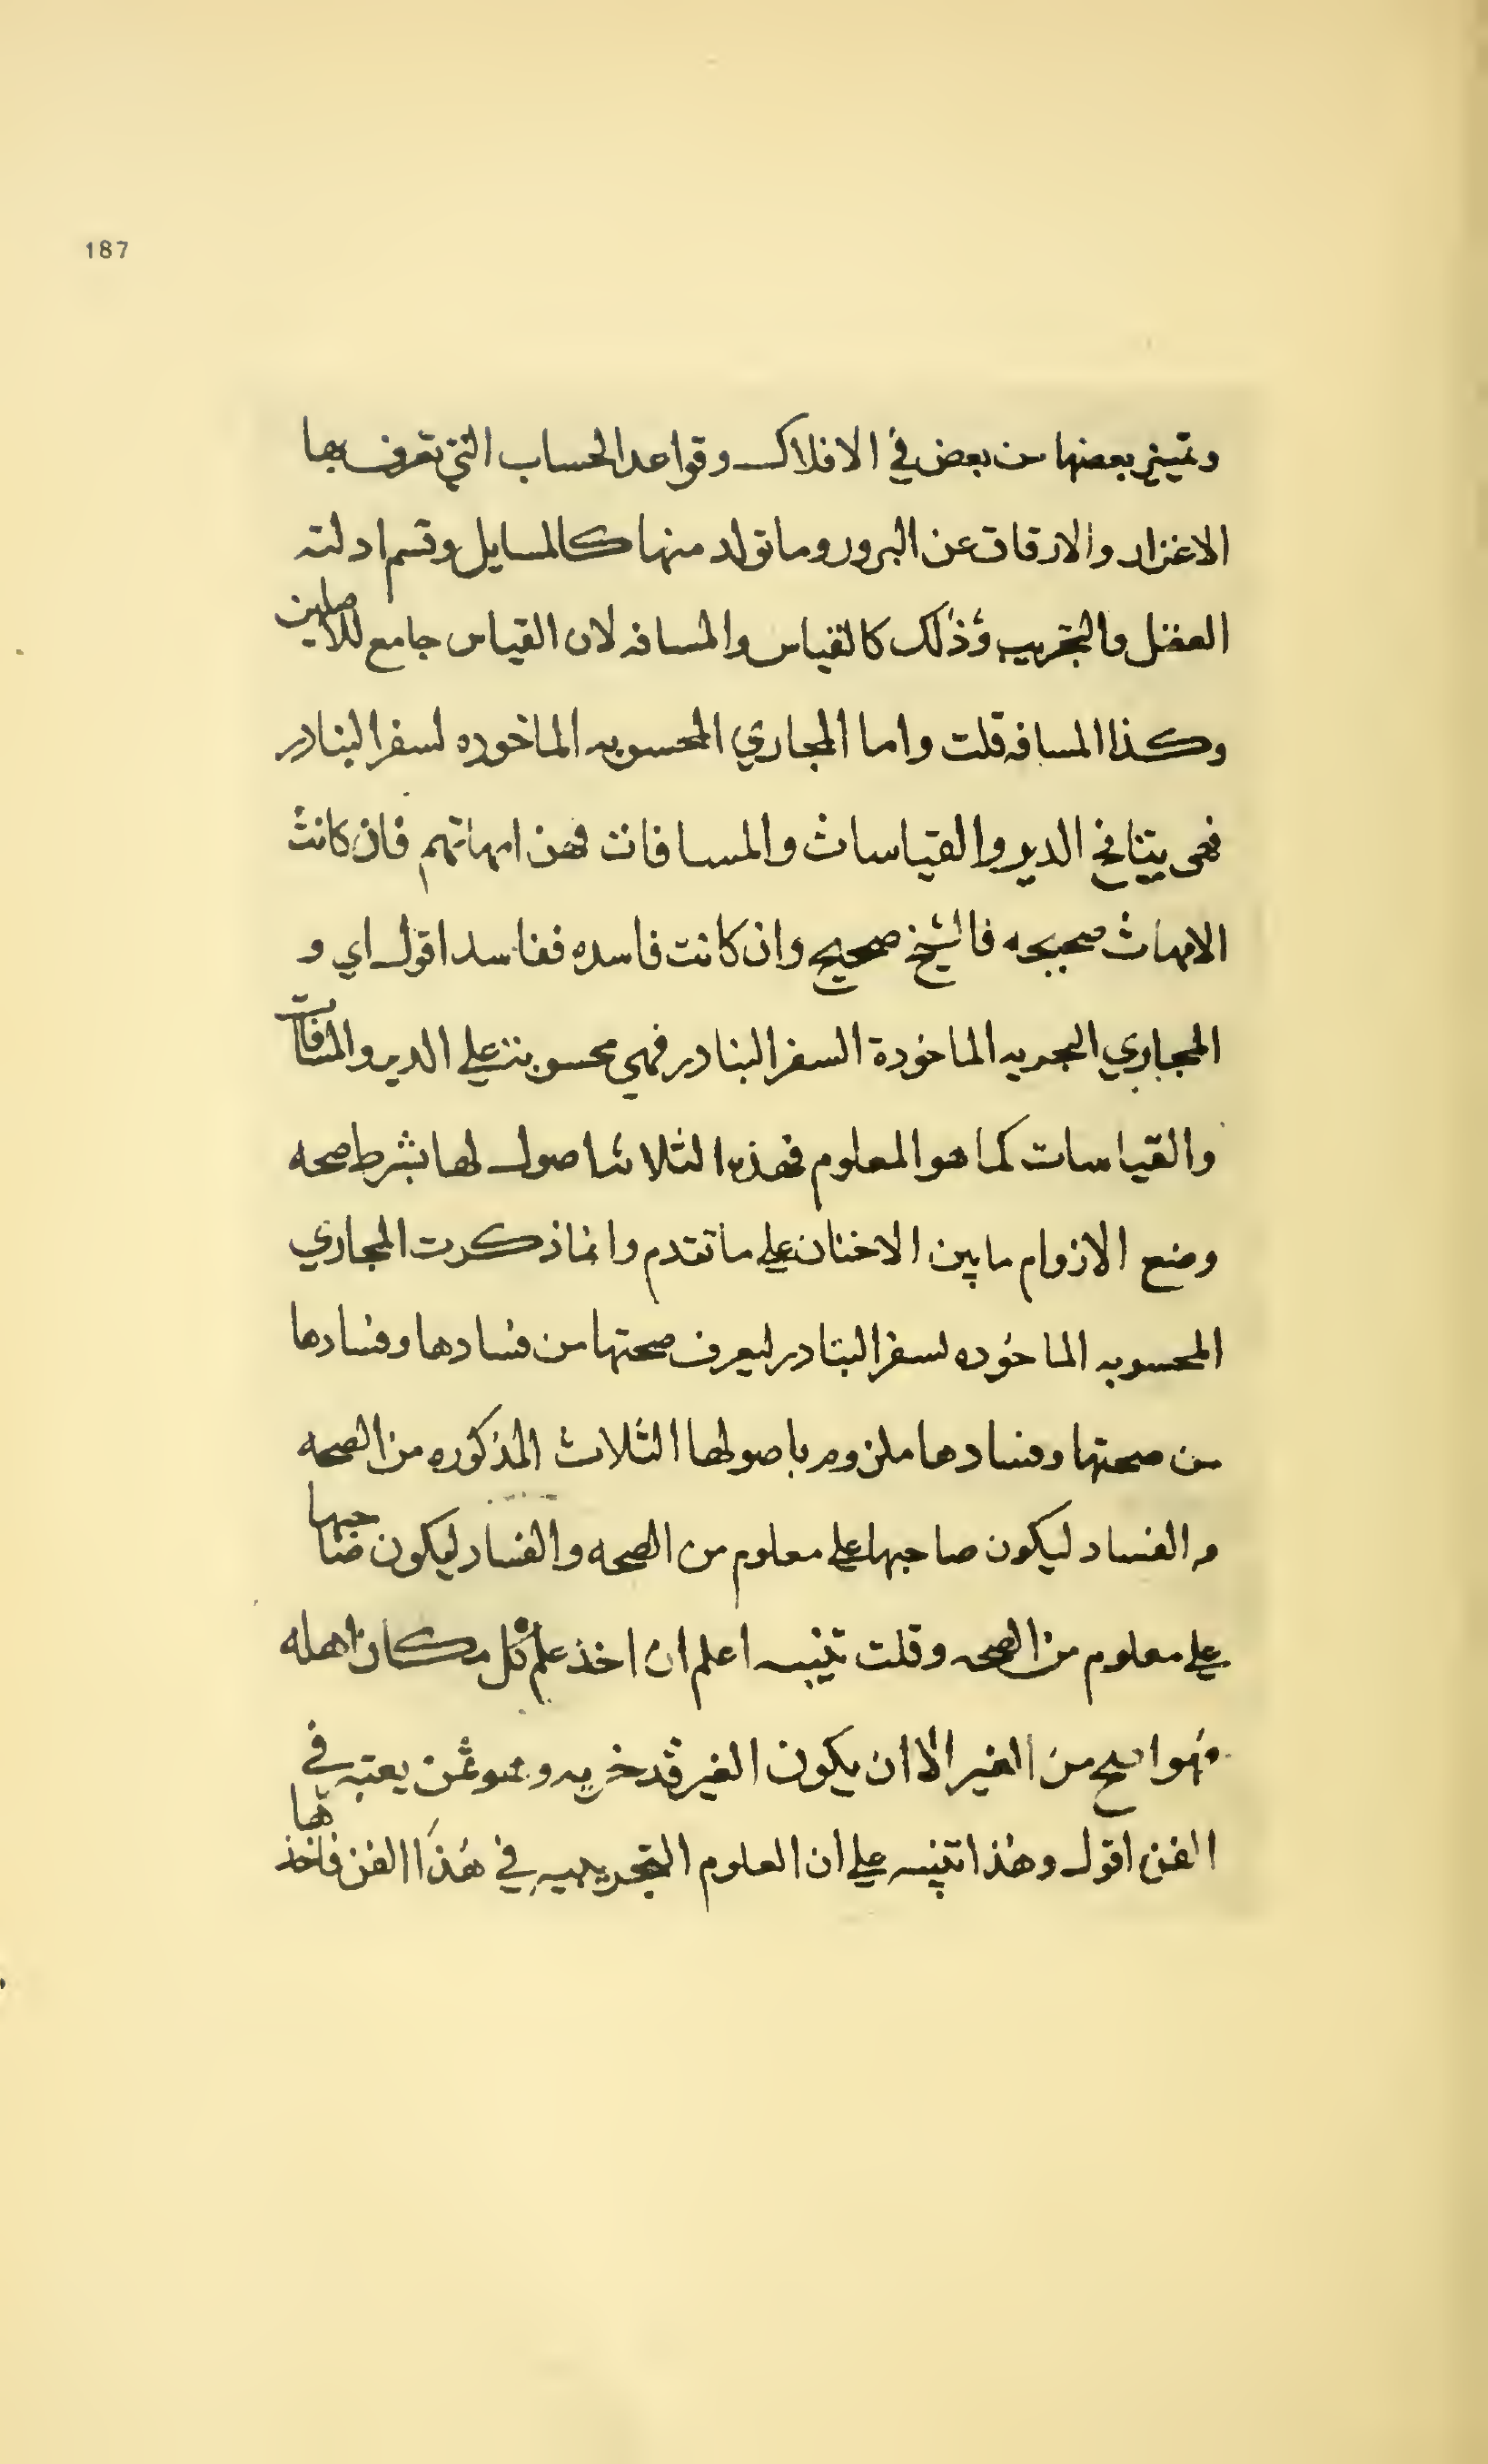 187
وتميز بعضها من بعض في الافلاك وقواعد الحساب التي تعرف بها
الاغزار والارقات عن البرور وما تولد منها كالمسايل وقسم ادلته
العقل والتجريب وذلك كالقياس والمسافه لان القياس جامع للاصلين
وكذا المسافه قلت واما المجاري المحسوبه الماخوده لسفر البنادر
فهى نتائج الدير والقياسات والمسافات فهن امهاتهم فان كانت
الامهات صحيحه فالشيخ صحيح وان كانت فاسده ففاسد اقول اي و
المجاري البحريه الماخودة السفر البنادر فهي محسوبته علي الدير والمسافات
والقياسات كما هو المعلوم فهذه الثلاثا صول لها بشرط صحه
وضع الازوام ما بين الاخنان علي ما تقدم وانما ذكرت المجاري
المحسوبه الماخوده لسفر البنادر ليعرف صحتها من فسادها وفسادها
من صحتها وفسادها ملزوم باصولها الثلاث المذكوره من الصحه
و الفساد ليكون صاحبها علي معلوم من الصحه والفساد ليكون صاحبها
علي معلوم من الصحه وقلت تنبيه اعلم ان اخذ علم كل مكان اهله
فهو اصح من الغير الا ان يكون الغير قد خربه وهو ممن يعتبر في
الفن اقول وهذا تنبيه علي ان العلوم التجريبيه في هذا الفن فاخذها